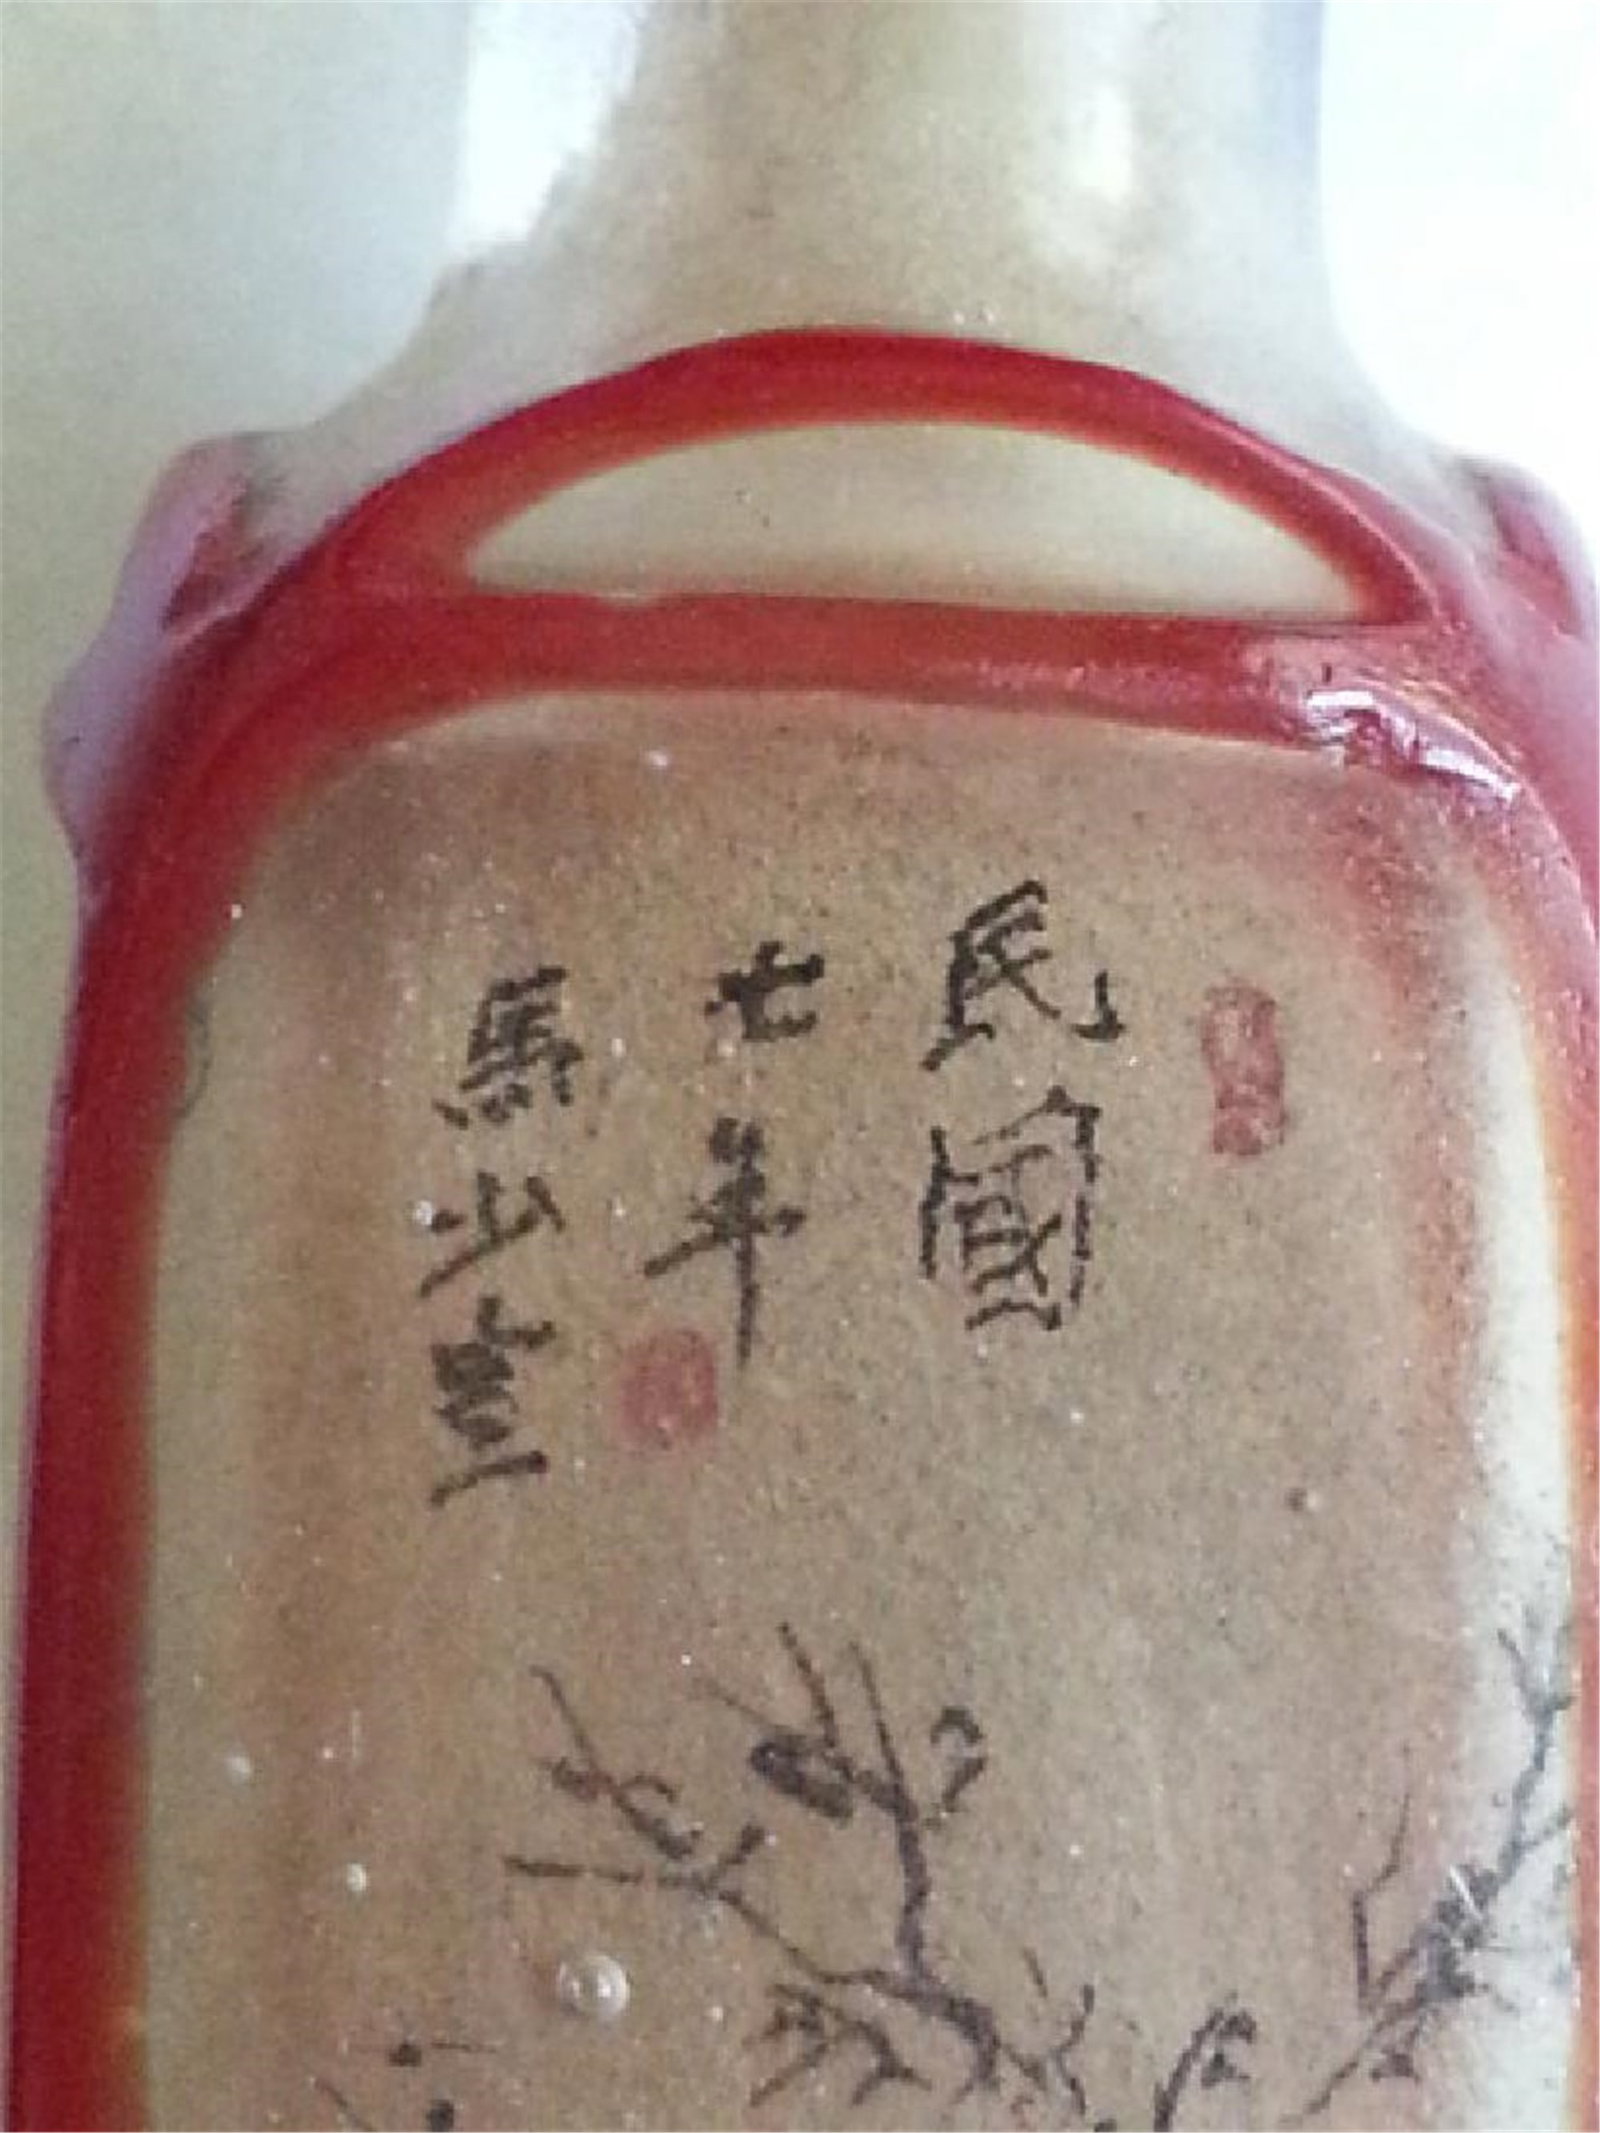 民國
七年
馬少宣